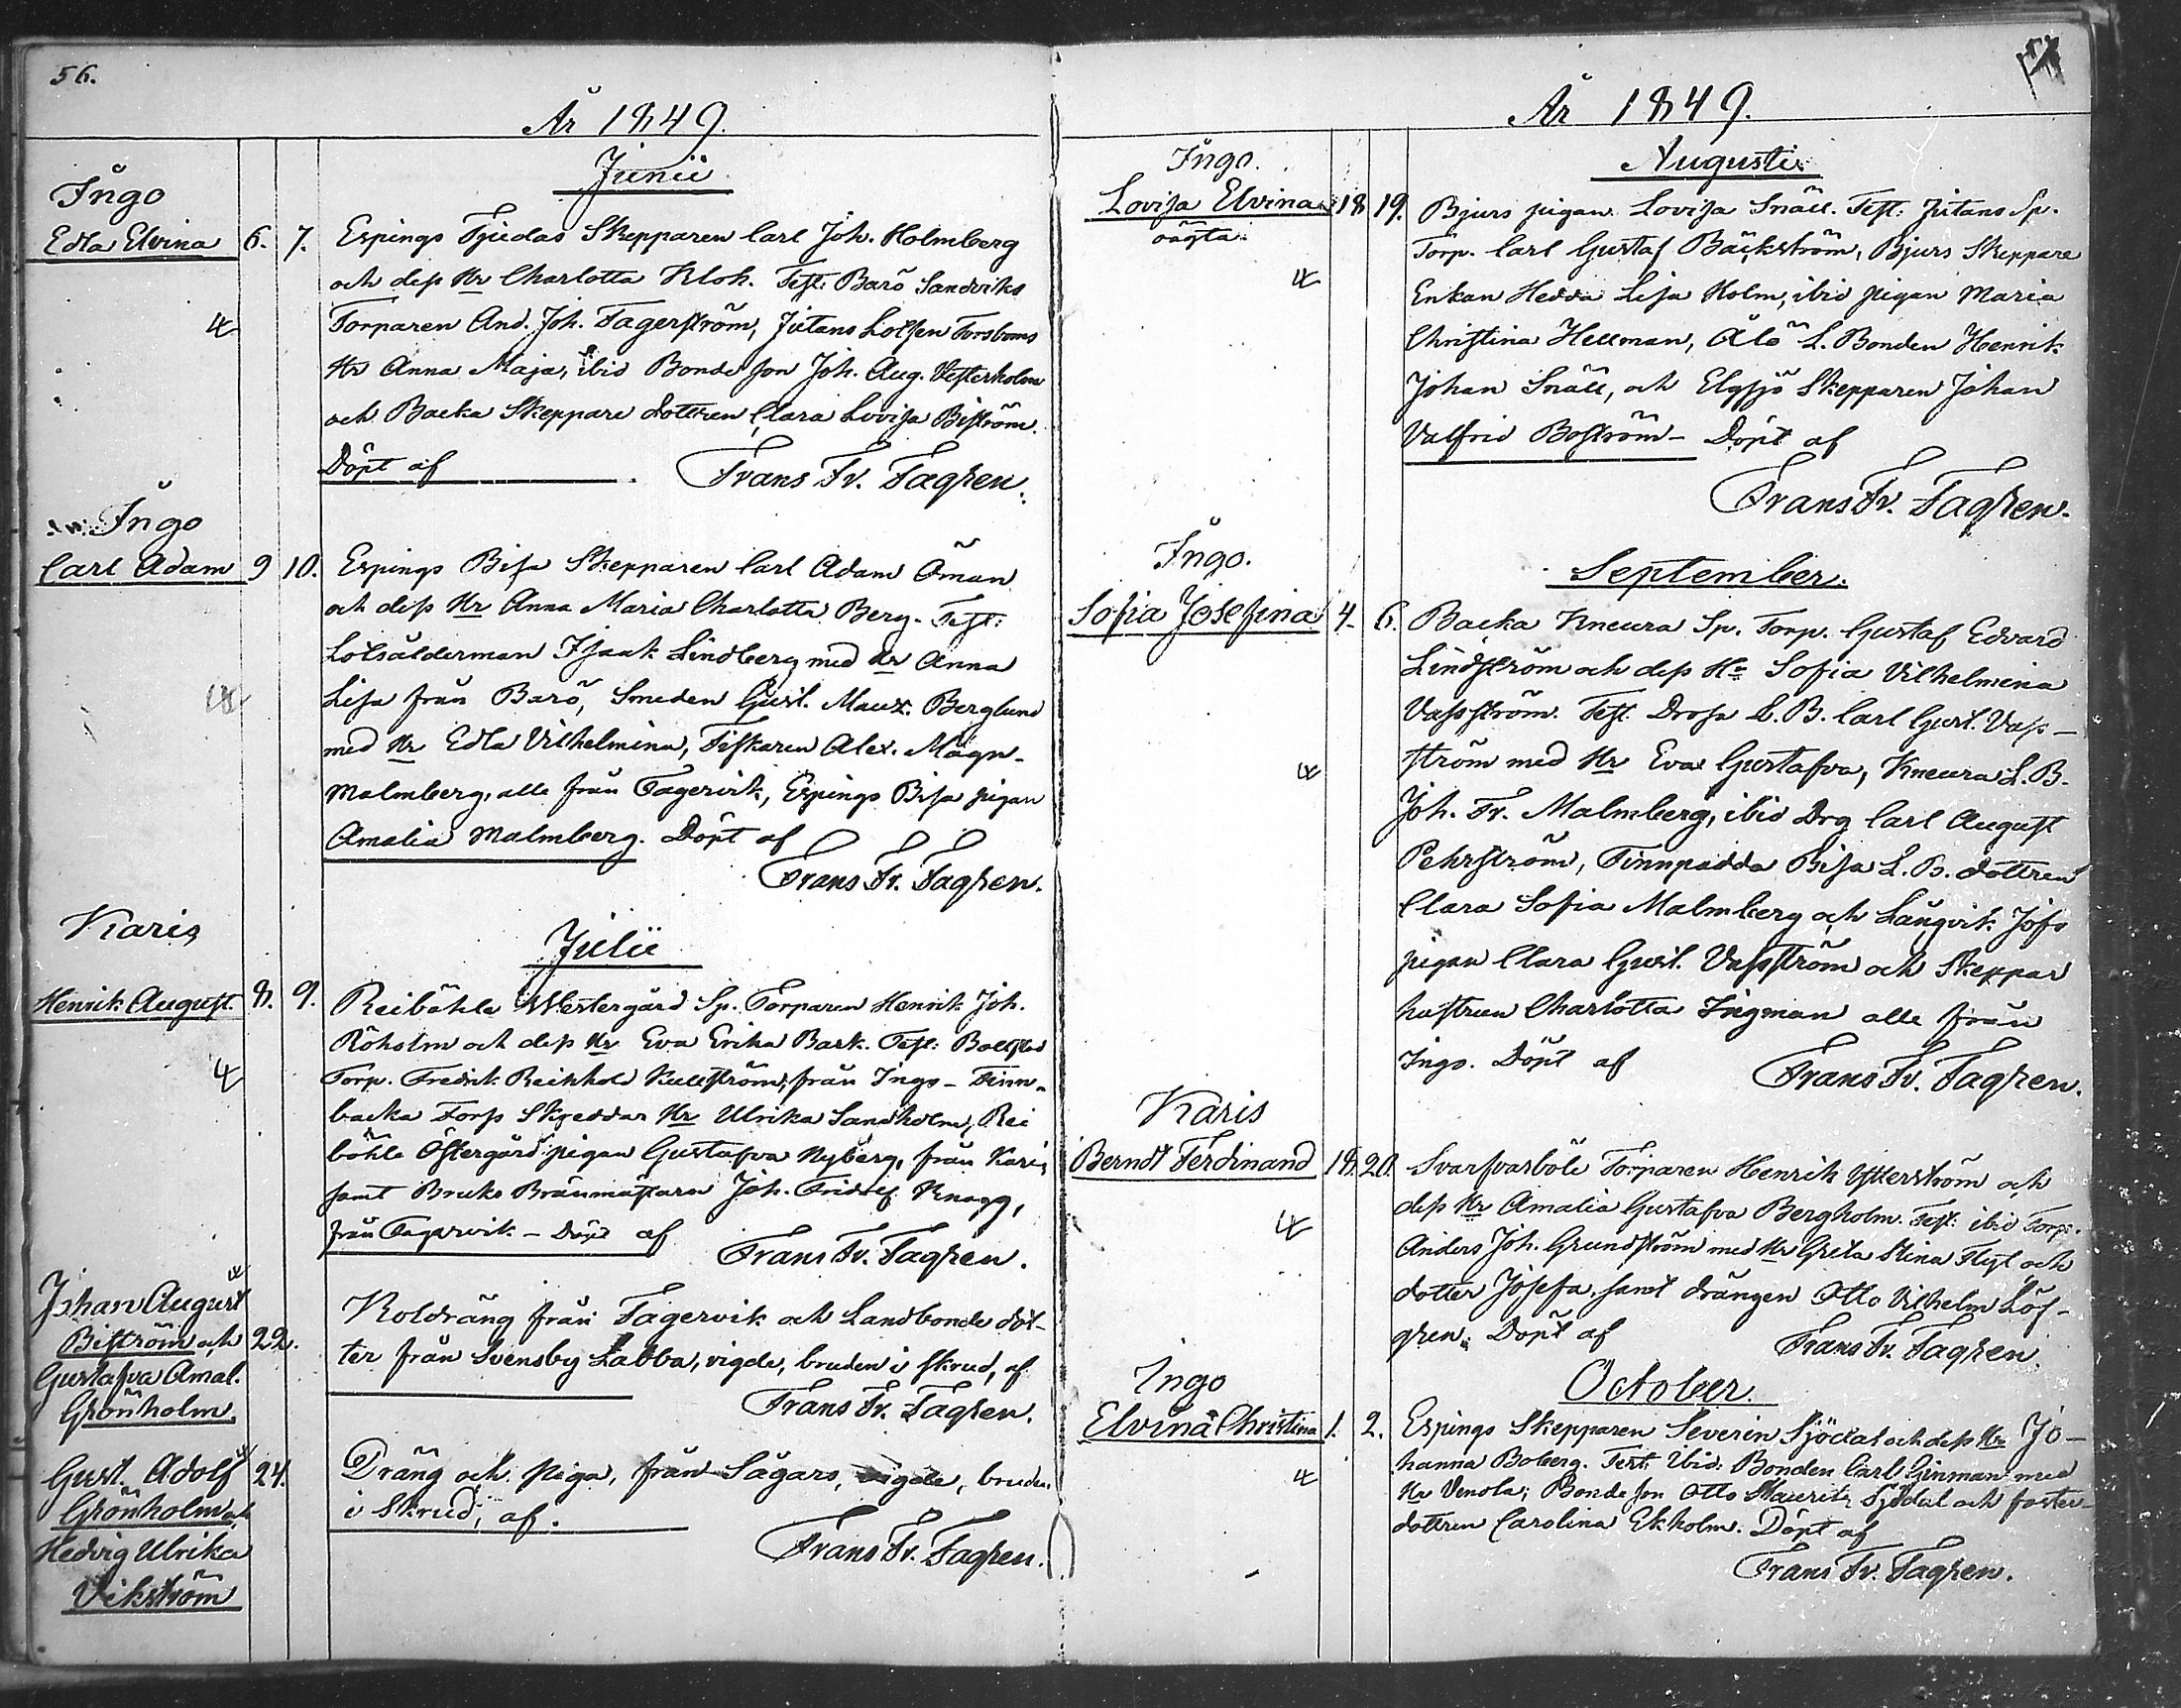 56.
År 1849.
Junii
Ingo
Edla Elvina 6. 7. Espings Tjudas Skepparen Carl Joh. Holmberg
och dess Hr Charlotta Klok. Test: Barö Sandviks
Torparen And. Joh. Fagerström, Jutans Lotsen Forsboms
Hr Anna Maja, ibid Bonde son Joh. Aug. Vesterholm
och Backa Skeppare dottren Clara Lovisa Biström.
Döpt af Frans Fr. Fagren.
Ingo
Carl Adam 9 10. Espings Bisa Skepparen Carl Adam Öman
och dess Hr Anna Maria Charlotta Berg. Test:
Lotsålderman Isaak Lindberg med Hr Anna
Lisa från Barö, Smeden Gust. Maur. Berglund
med Hr Edla Vilhelmina, Fiskaren Alex. Magn.
Malmberg, alle från Fagervik, Espings Bisa pigan
Amalia Malmberg. Döpt af
Frans Fr. Fagren.
Karis
Julii
Henrik August. 8. 9. Reiböhle Westergård Sp. Torparen Henrik Joh.
Röholm och dess Hr Eva Erika Bark. Test: Bollstad
Torp. Fredrik Reinhold Kullström, från Ingo - Finn-
backa Torp Skräddar Hr Ulrika Sandholm, Rei
böhle Östergård pigan Gustafva Nyberg, från Karis,
samt Bruks Bränmästarn Joh. Fridolf Knagg,
från Fagervik - Döpt af Frans Fr. Fagren.
Johan August
Biström och 22.
Gustafva Amal.
Grönholm.
Koldräng från Fagervik och Landbonde dot-
ter från Svensby Labba, vigde, bruden i skrud, af
Frans Fr. Fagren.
Gust. Adolf 24.
Grönholm och
Hedvig Ulrika
Vikström
Dräng och piga, från Sågars, vigde, bruden
i skrud, af.
Frans Fr. Fagren.
År 1849.
Augusti
Ingo.
Lovisa Elvina 18 19. Bjurs pigan Lovisa Snäll. Test: Jutans Sp.
oägta.
Torp. Carl Gustaf Bäckström, Bjurs Skeppare
Enkan Hedda Lisa Holm, ibid pigan Maria
Christina Hellman, Älö L. Bonden Henrik
Johan Snäll, och Elgsjö Skepparen Johan
Valfrid Boström - Döpt af
Frans Fr. Fagren.
Ingo.
September.
Sofia Josefina 4. 6. Backa Kneura Sp. Torp. Gustaf Edvard
Lindström och dess Hr Sofia Vilhelmina
Vassström. Test. Drosa L. B. Carl Gust. Vass-
ström med Hr Eva Gustafva, Kneura L. B.
Joh. Fr. Malmberg, ibid Drg Carl August
Pehrström, Finnpadda Bisa L. B. dottren
Clara Sofia Malmberg och Långvik Jofs
pigan Clara Gust. Vassström och Skeppar
hustrun Charlotta Ingman alle från
Ingo. Döpt af Frans Fr. Fagren.
Karis
Berndt Ferdinand 18. 20. Svarfvarböle Torparen Henrik Ytterström och
dess Hr Amalia Gustafva Bergholm. Test: ibid Torp.
Anders Joh. Grundström med Hr Greta Stina Flyt och
dotter Josefa, samt drängen Otto Vilhelm Löf-
gren. Döpt af Frans Fr. Fagren.
Ingo
October.
Elvina Christina 1. 2. Espings Skepparen Severin Sjödal och dess Hr Jo-
hanna Boberg. Test: ibid: Bonden Carl Ginman med
Hr Venola; Bonde son Otto Mauritz Sjödal och foster-
dottren Carolina Ekholm. Döpt af
Frans Fr. Fagren.